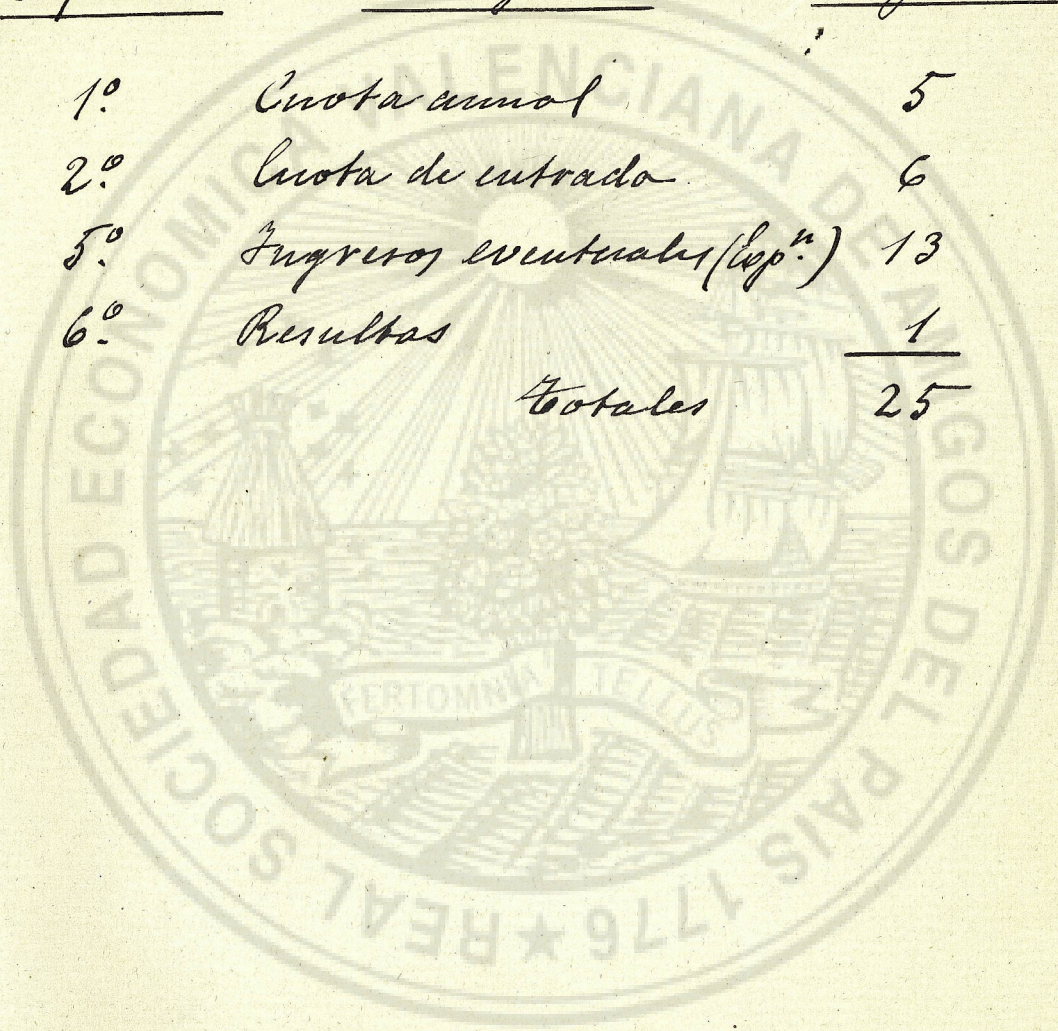 1º Cuota annal 5
2º Cuota de entrada 6
5º Ingresos eventuales (Expn.) 13
6º Resultas 1
Totales 25
REAL SOCIEDAD ECONOMICA VALENCIANA DE AMIGOS DEL PAIS 1776 ★
FERT OMNIA TELLUS